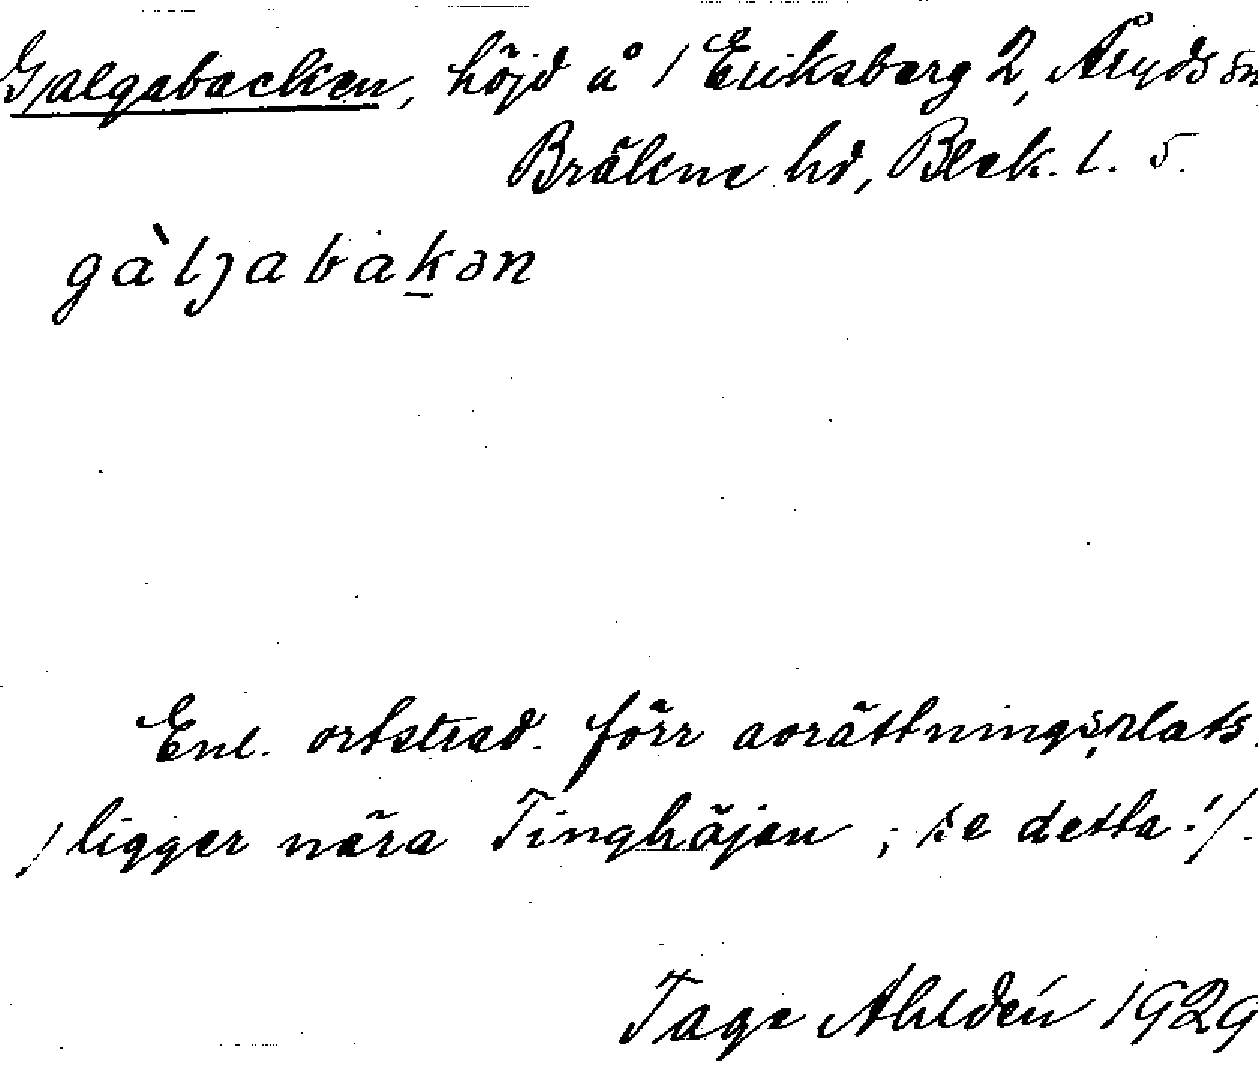 Galgabacken, höjd å 1 Eriksberg 2, Åryds sn
Bräkne hd, Blek. l. 5.
gàlɟabak̠ən
Enl. ortstrad. förr avrättningsplats.
/ ligger nära Tinghöjen ; se detta! /.
Tage Ahldén 1929